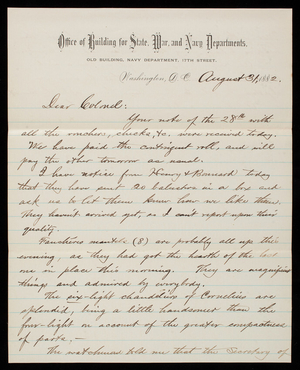 Office of Building for State, War, and Navy Departments.
OLD BUILDING, NAVY DEPARTMENT, 17TH STREET.
Washington, D.C. August 31, 1882.
Dear Colonel:
Your note of the 28th with
all the vouchers, checks, &c. were received today.
We have paid the contingent roll, and will
pay the other tomorrow as usual.
I have notice from Henry & Bonnard today
that they have sent 20 balusters in a box and
ask us to let them know how we like them.
They haven't arrived yet, so I can't report upon their
quality.
Fauchères mantels (8) are probably all up this
evening, as they had got the hearth of the last
one in place this morning. They are magnificent
things and admired by everybody.
The six-light chandeliers of Cornelius are
splendid, being a little handsomer than the
four-light on account of the greater compactness
of parts.-
The watchman told me that the Secretary of